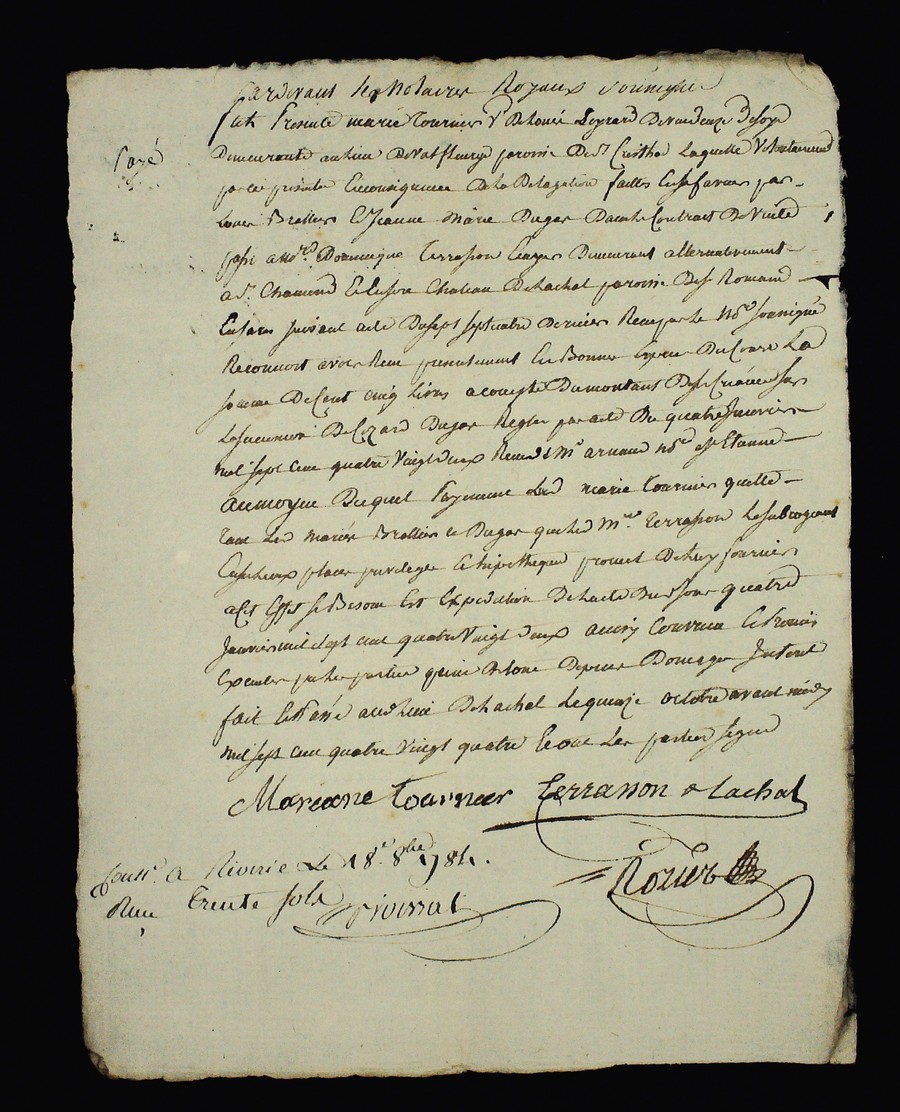 Pardevant les Notaires Royaux soussignes
fut Presente marie Tournier Ve De Louis
Payé
Demeurante au lieu De Valfleury paroisse De St Cristho Laquelle Volontairement
par ces presentes En consequence De La Delegation faittes En sa faveur par
Louis Brottier Et Jeanne Marie Dugas Dans le Contract De Vente
passé a No.e Dominique Terrasson Ecuyer Demeurant alternativement
a St Chamond Et En son Chateau De Lachal paroisse De St Romand
En Jares suivant acte Du sept septembre Dernier Reçu par le No.e soussigné
Reconnoit avoir Reçu presentement En Bonnes Especes Du Cours La
somme De Cent cinq livres a compte Du montant De sa Creance sur
La succession De Dugas Reglée par acte Du quatre Janvier
mil sept cent quatre Vingt deux Reçu Me arnaud No.e a St Etienne
au moyen Duquel Payement Lad marie Tournier quitte
tant Les mariés Brottier et Dugas que led Mr Terrasson Le subrogeant
En ses Lieux place privilege Et hipotheque promet De luy fournir
a Cet Effet se Besoin Est Expedition De lacte Du sd Jour quatre
Janvier mil sept cent quatre Vingt deux ainsy Convenu Et Promis
Executer par les parties peine De tous Depens Domages Interets
fait Et Passé aud Lieu De Lachal Le quinze octobre avant midy
mil sept cent quatre Vingt quatre Et ont Les parties signé
Mariane Tournier Terrasson De Lachal
Conté. a Riverie Le 18e 8bre 1784.
Reçu Trente sols